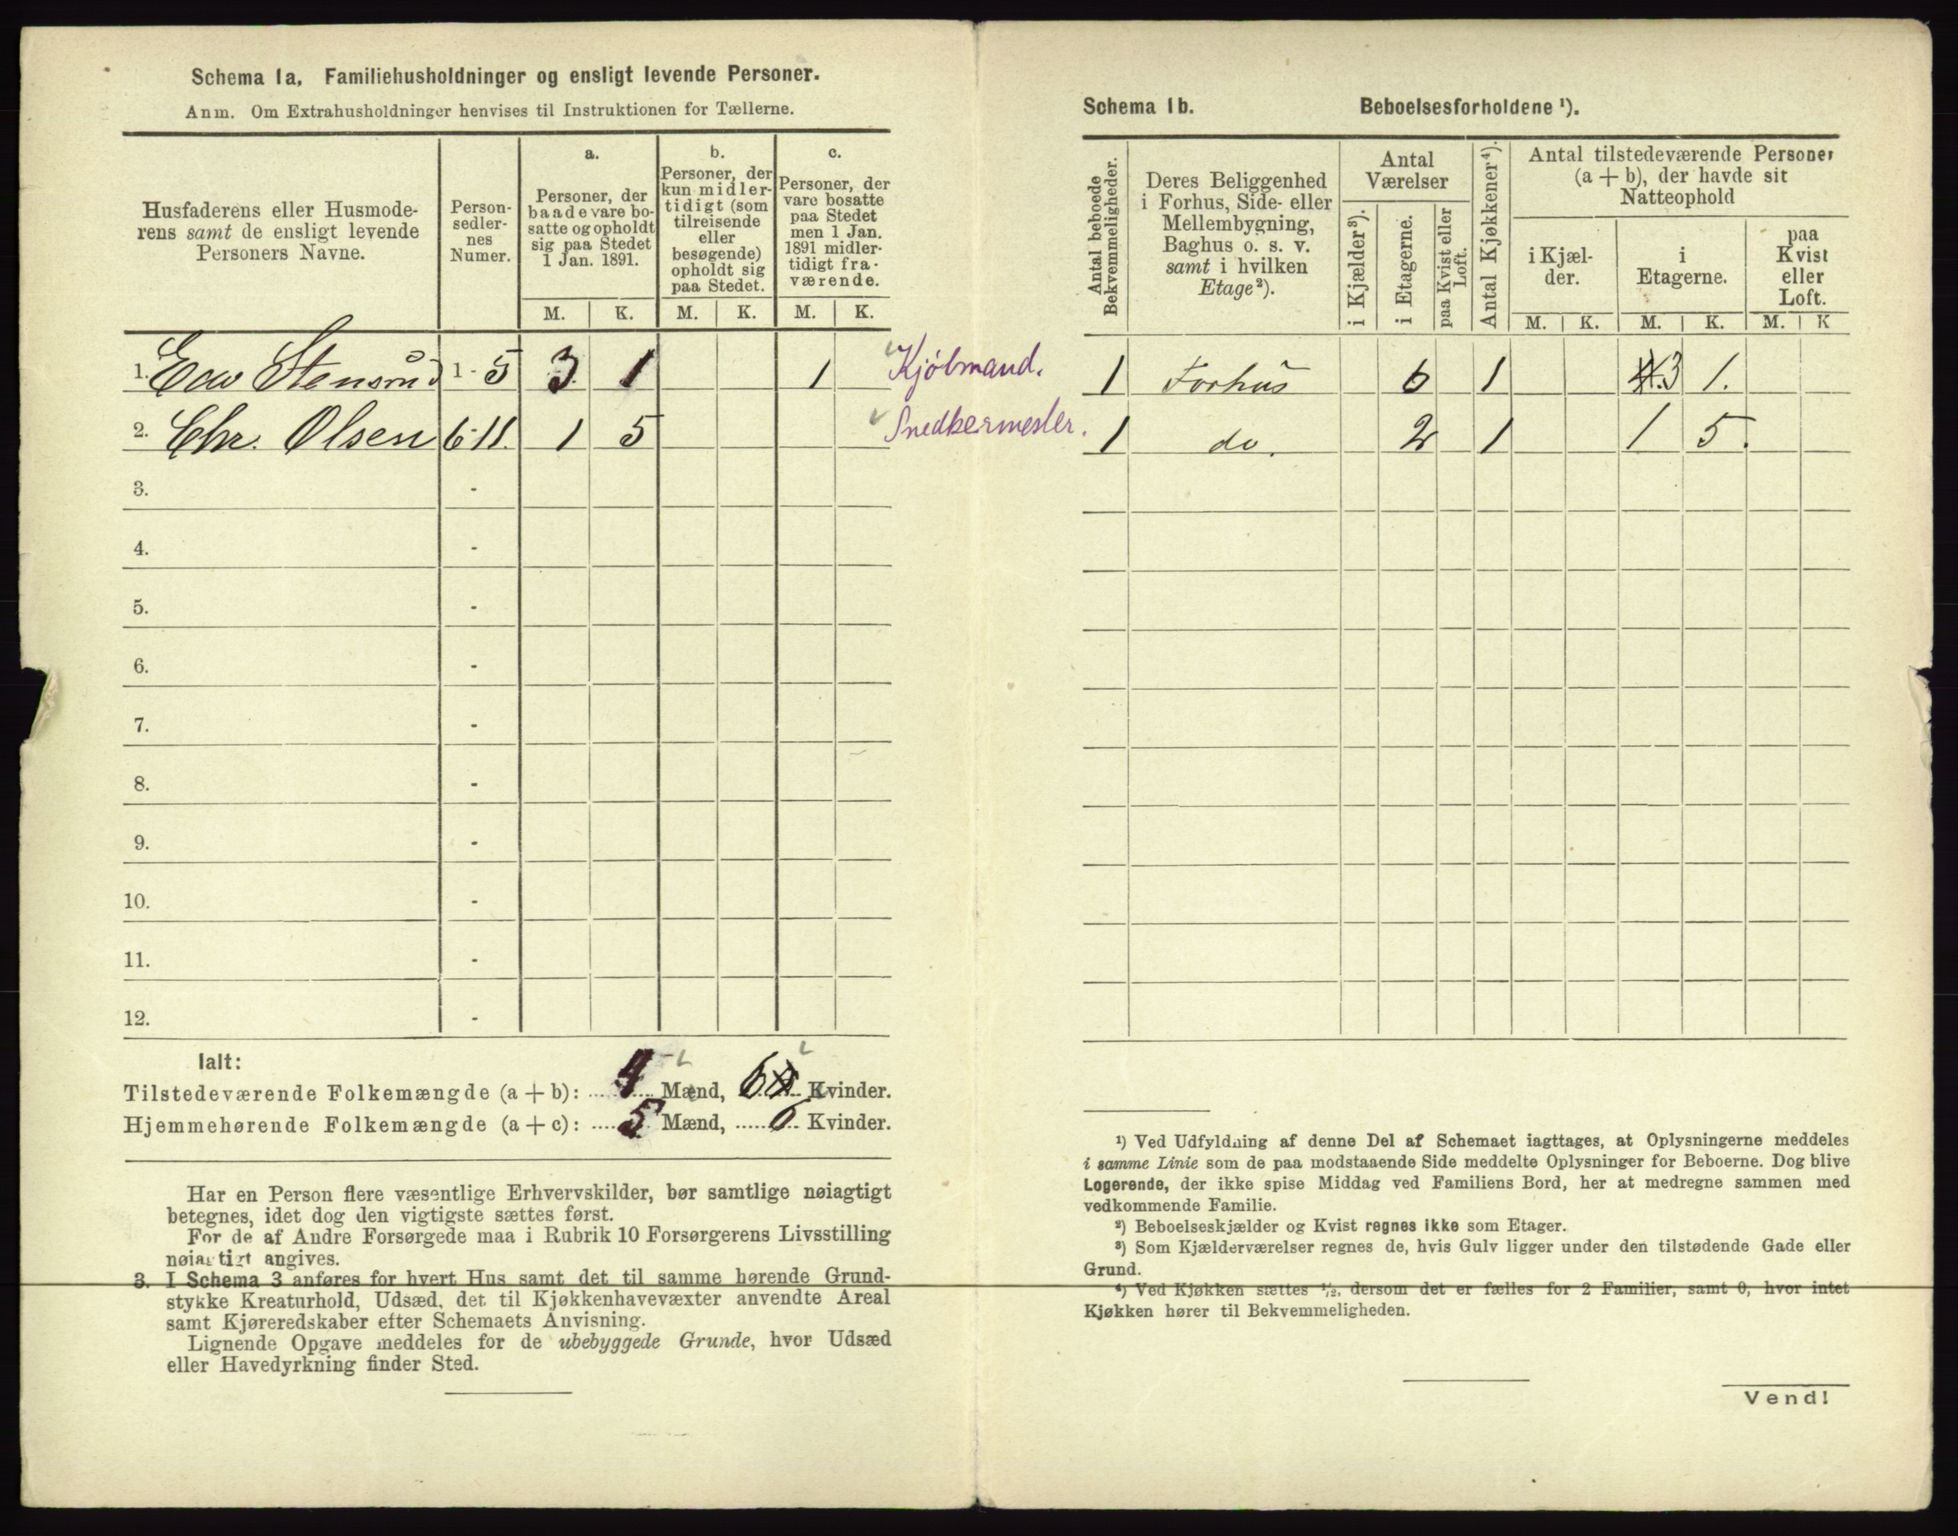 Schema 1a, Familiehusholdninger og ensligt levende Personer.
Anm. Om Extrahusholdninger henvises til Instruktionen for Tællerne.
Husfaderens eller Husmode-
rens samt de ensligt levende
Personers Navne.
Person-
sedler-
nes
Numer.
a.
Personer, der
baade vare bo-
satte og opholdt
sig paa Stedet
1 Jan. 1891.
b.
Personer, der
kun midler-
tidigt (som
tilreisende
eller
besøgende)
opholdt sig
paa Stedet.
c.
Personer, der
vare bosatte
paa Stedet
men 1 Jan.
1891 midler-
tidigt fra-
værende.
M. K. M. K. M. K.
1. Edw Stensrud 1-5 3 1 1 Kjøbmand.
2. Chr. Olsen 6-11. 1 5 Snedkermester.
3. -
4. -
5. -
6. -
7. -
8. -
9. -
10. -
11. -
12. -
Ialt:
Tilstedeværende Folkemængde (a + b): 4 Mænd, 6 Kvinder.
Hjemmehørende Folkemængde (a + c): 5 Mænd, 6 Kvinder.
Har en Person flere væsentlige Erhvervskilder, bør samtlige nøiagtigt
betegnes, idet dog den vigtigste sættes først.
For de af Andre Forsørgede maa i Rubrik 10 Forsørgerens Livsstilling
nøiagtigt angives.
3. I Schema 3 anføres for hvert Hus samt det til samme hørende Grund-
stykke Kreaturhold, Udsæd, det til Kjøkkenhavevæxter anvendte Areal
samt Kjøreredskaber efter Schemaets Anvisning.
Lignende Opgave meddeles for de ubebyggede Grunde, hvor Udsæd
eller Havedyrkning finder Sted.
Schema 1b. Beboelsesforholdene ¹).
Antal beboede
Bekvemmeligheder.
Deres Beliggenhed
i Forhus, Side- eller
Mellembygning,
Baghus o. s. v.
samt i hvilken
Etage²).
Antal
Værelser
i Kjælder³).
i Etagerne.
paa Kvist eller
Loft.
Antal Kjøkkener⁴).
Antal tilstedeværende Personer
(a + b), der havde sit
Natteophold
i Kjæl-
der.
i
Etagerne.
paa
Kvist
eller
Loft.
M. K. M. K. M. K
1 Forhus 6 1 3 1.
1 do. 2 1 1 5.
¹) Ved Udfyldning af denne Del af Schemaet iagttages, at Oplysningerne meddeles
i samme Linie som de paa modstaaende Side meddelte Oplysninger for Beboerne. Dog blive
Logerende, der ikke spise Middag ved Familiens Bord, her at medregne sammen med
vedkommende Familie.
²) Beboelseskjælder og Kvist regnes ikke som Etager.
³) Som Kjælderværelser regnes de, hvis Gulv ligger under den tilstødende Gade eller
Grund.
⁴) Ved Kjøkken sættes ¹/₂, dersom det er fælles for 2 Familier, samt 0, hvor intet
Kjøkken hører til Bekvemmeligheden.
Vend!